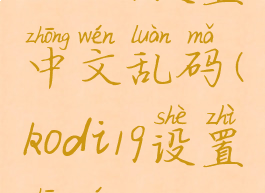 zhōng wén luàn mǎ
中文乱码(
shè zhì
kodi19设置